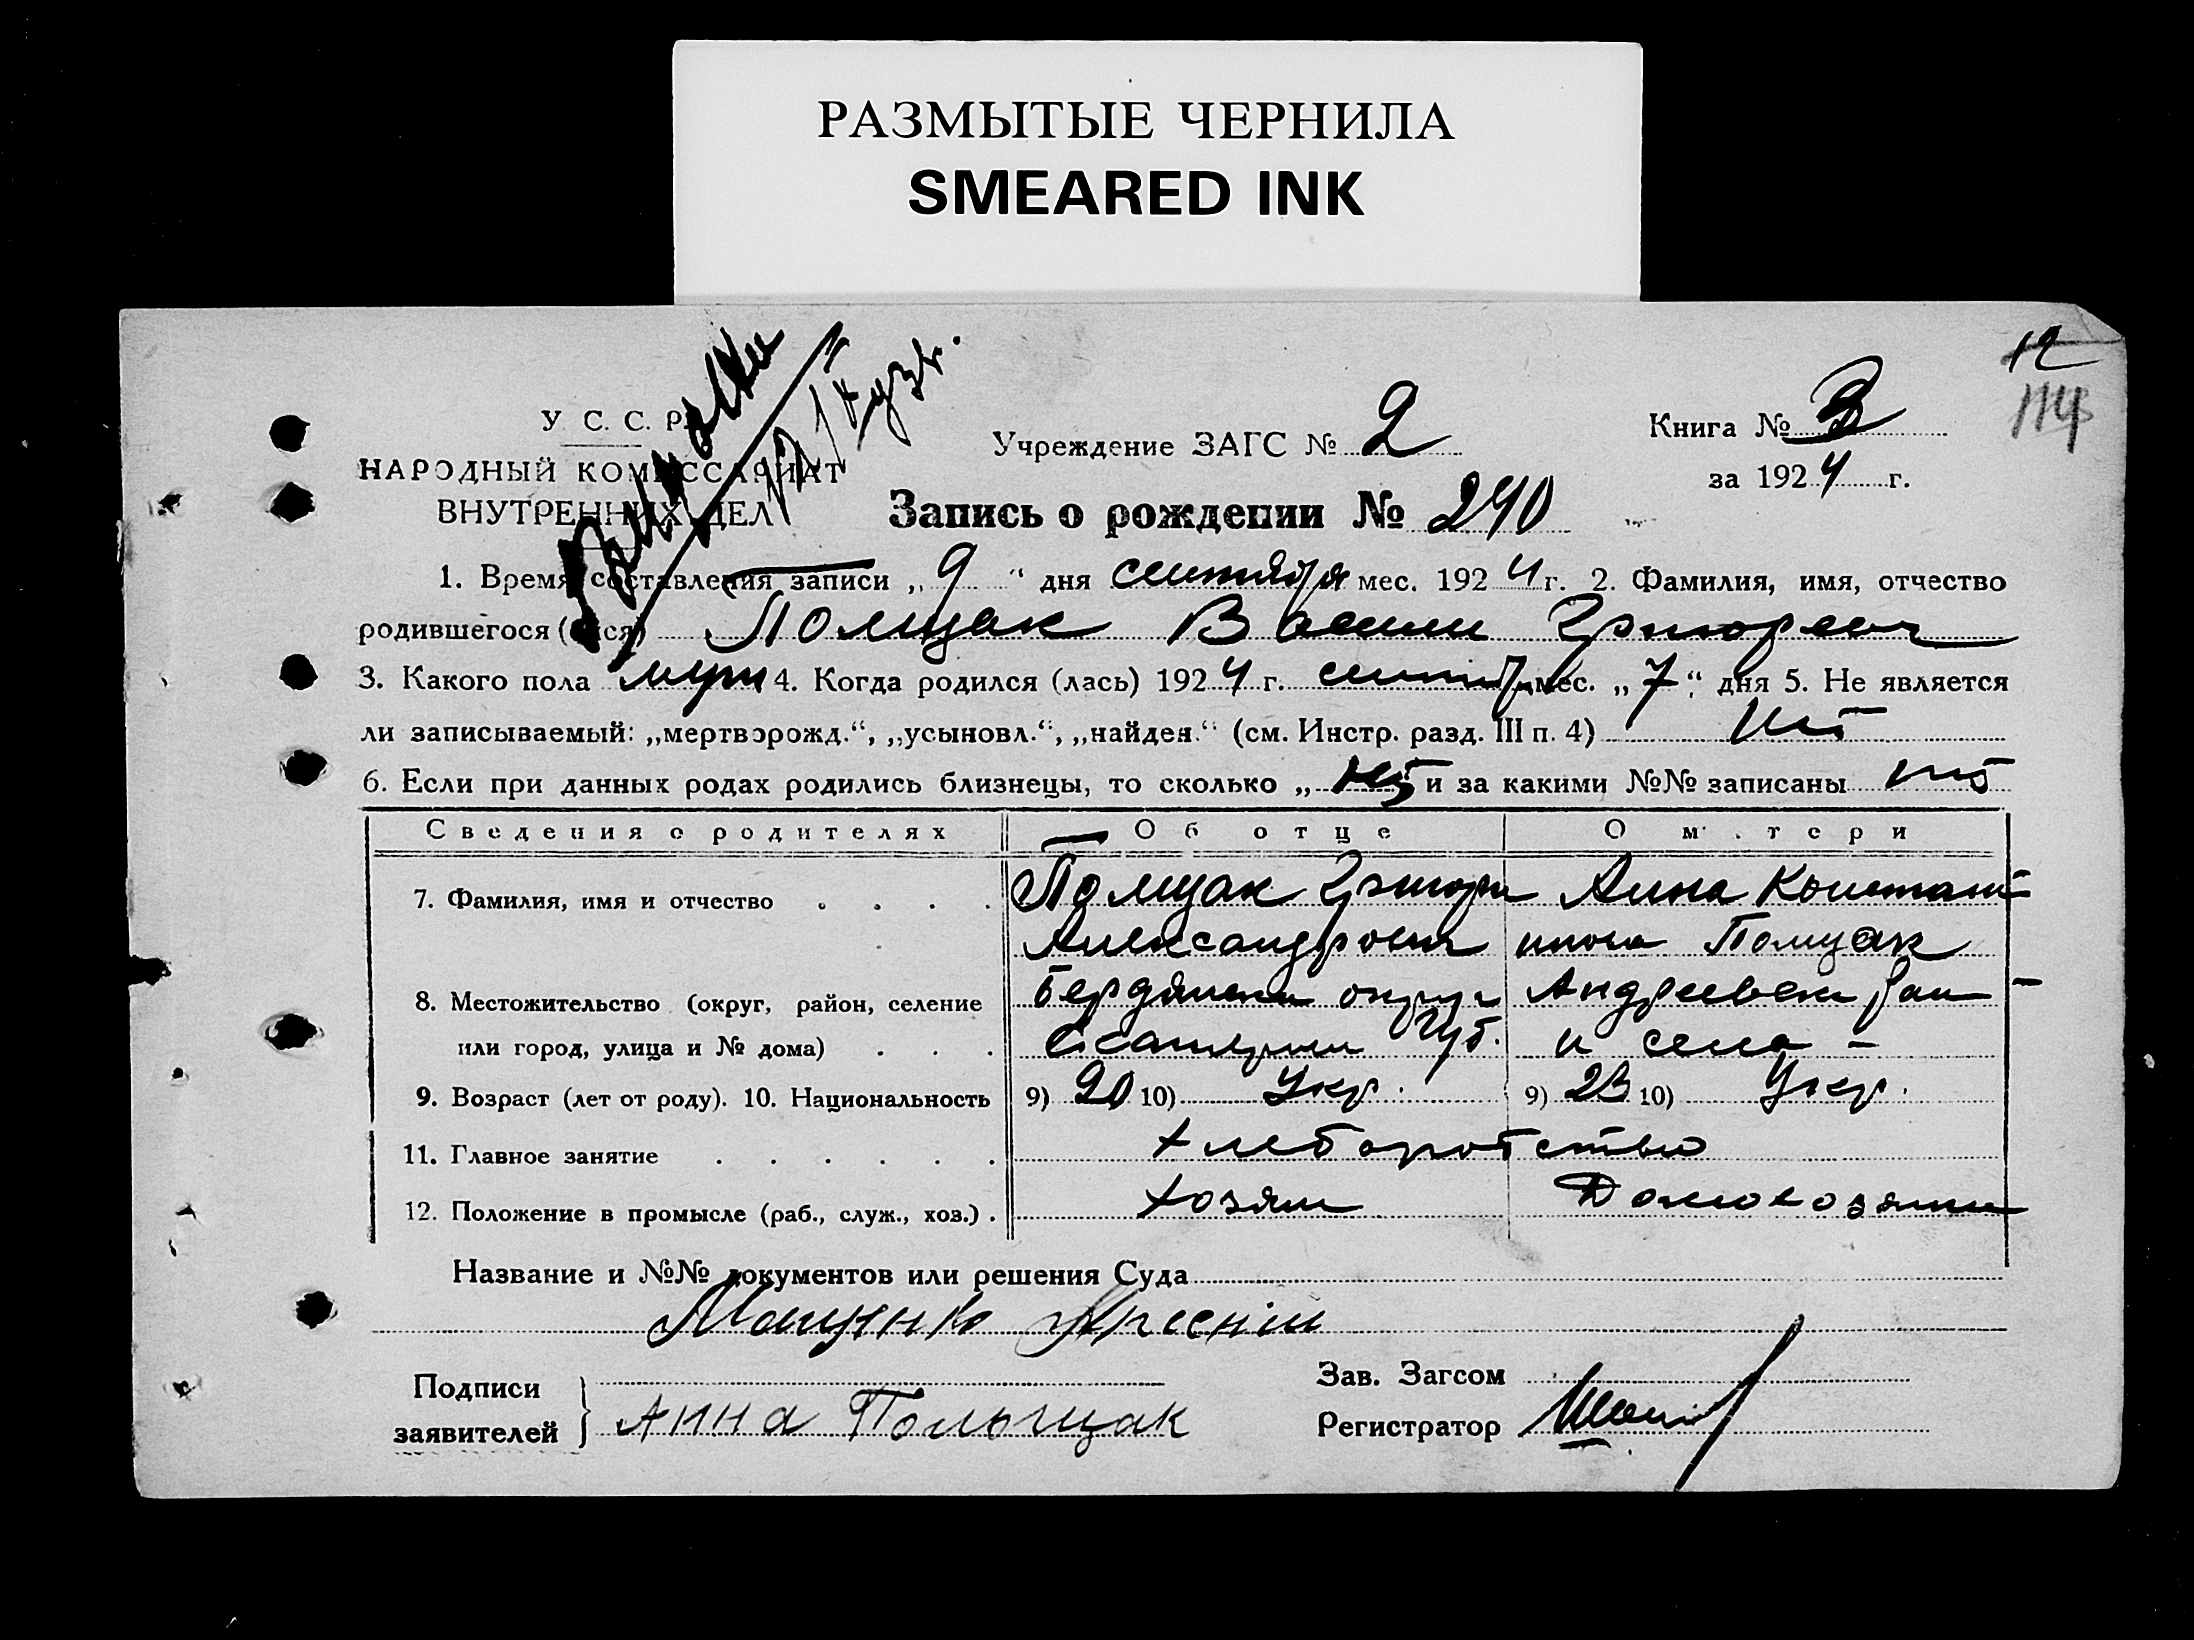 РАЗМЫТЫЕ ЧЕРНИЛА
SMEARED INK
12
У. С. С. Р.
НАРОДНЫЙ КОМИССАРИАТ
ВНУТРЕННИХ ДЕЛ
Учреждение ЗАГС № 2
Книга № 3
за 1924 г.
Запись о рождении № 240
1. Время составления записи „ 9 “ дня сентября мес. 1924 г. 2. Фамилия, имя, отчество
родившегося (ейся) Полщак Васили Григореев
3. Какого пола муж 4. Когда родился (лась) 1924 г. сентября мес. „ 7 “ дня 5. Не является
ли записываемый: „мертворожд.“, „усыновл.“, „найден.“ (см. Инстр. разд. III п. 4) нет
6. Если при данных родах родились близнецы, то сколько „ нет и за какими №№ записаны нет
Сведения о родителях Об отце О матери
7. Фамилия, имя и отчество . . . . Полщак Григори Анна Констант=
Александрович инова Полщак
8. Местожительство (округ, район, селение Бердянски округ Андреевск рай–
или город, улица и № дома) . . . Екатерин Губ. и село –
9. Возраст (лет от роду). 10. Национальность 9) 20 10) Укр. 9) 23 10) Укр.
11. Главное занятие . . . . . . Хлеборобство
12. Положение в промысле (раб., служ., хоз.) . Хозяин Домохозяин
Название и №№ документов или решения Суда
Арсении
Подписи
заявителей
Анна Польщак
Зав. Загсом
Регистратор